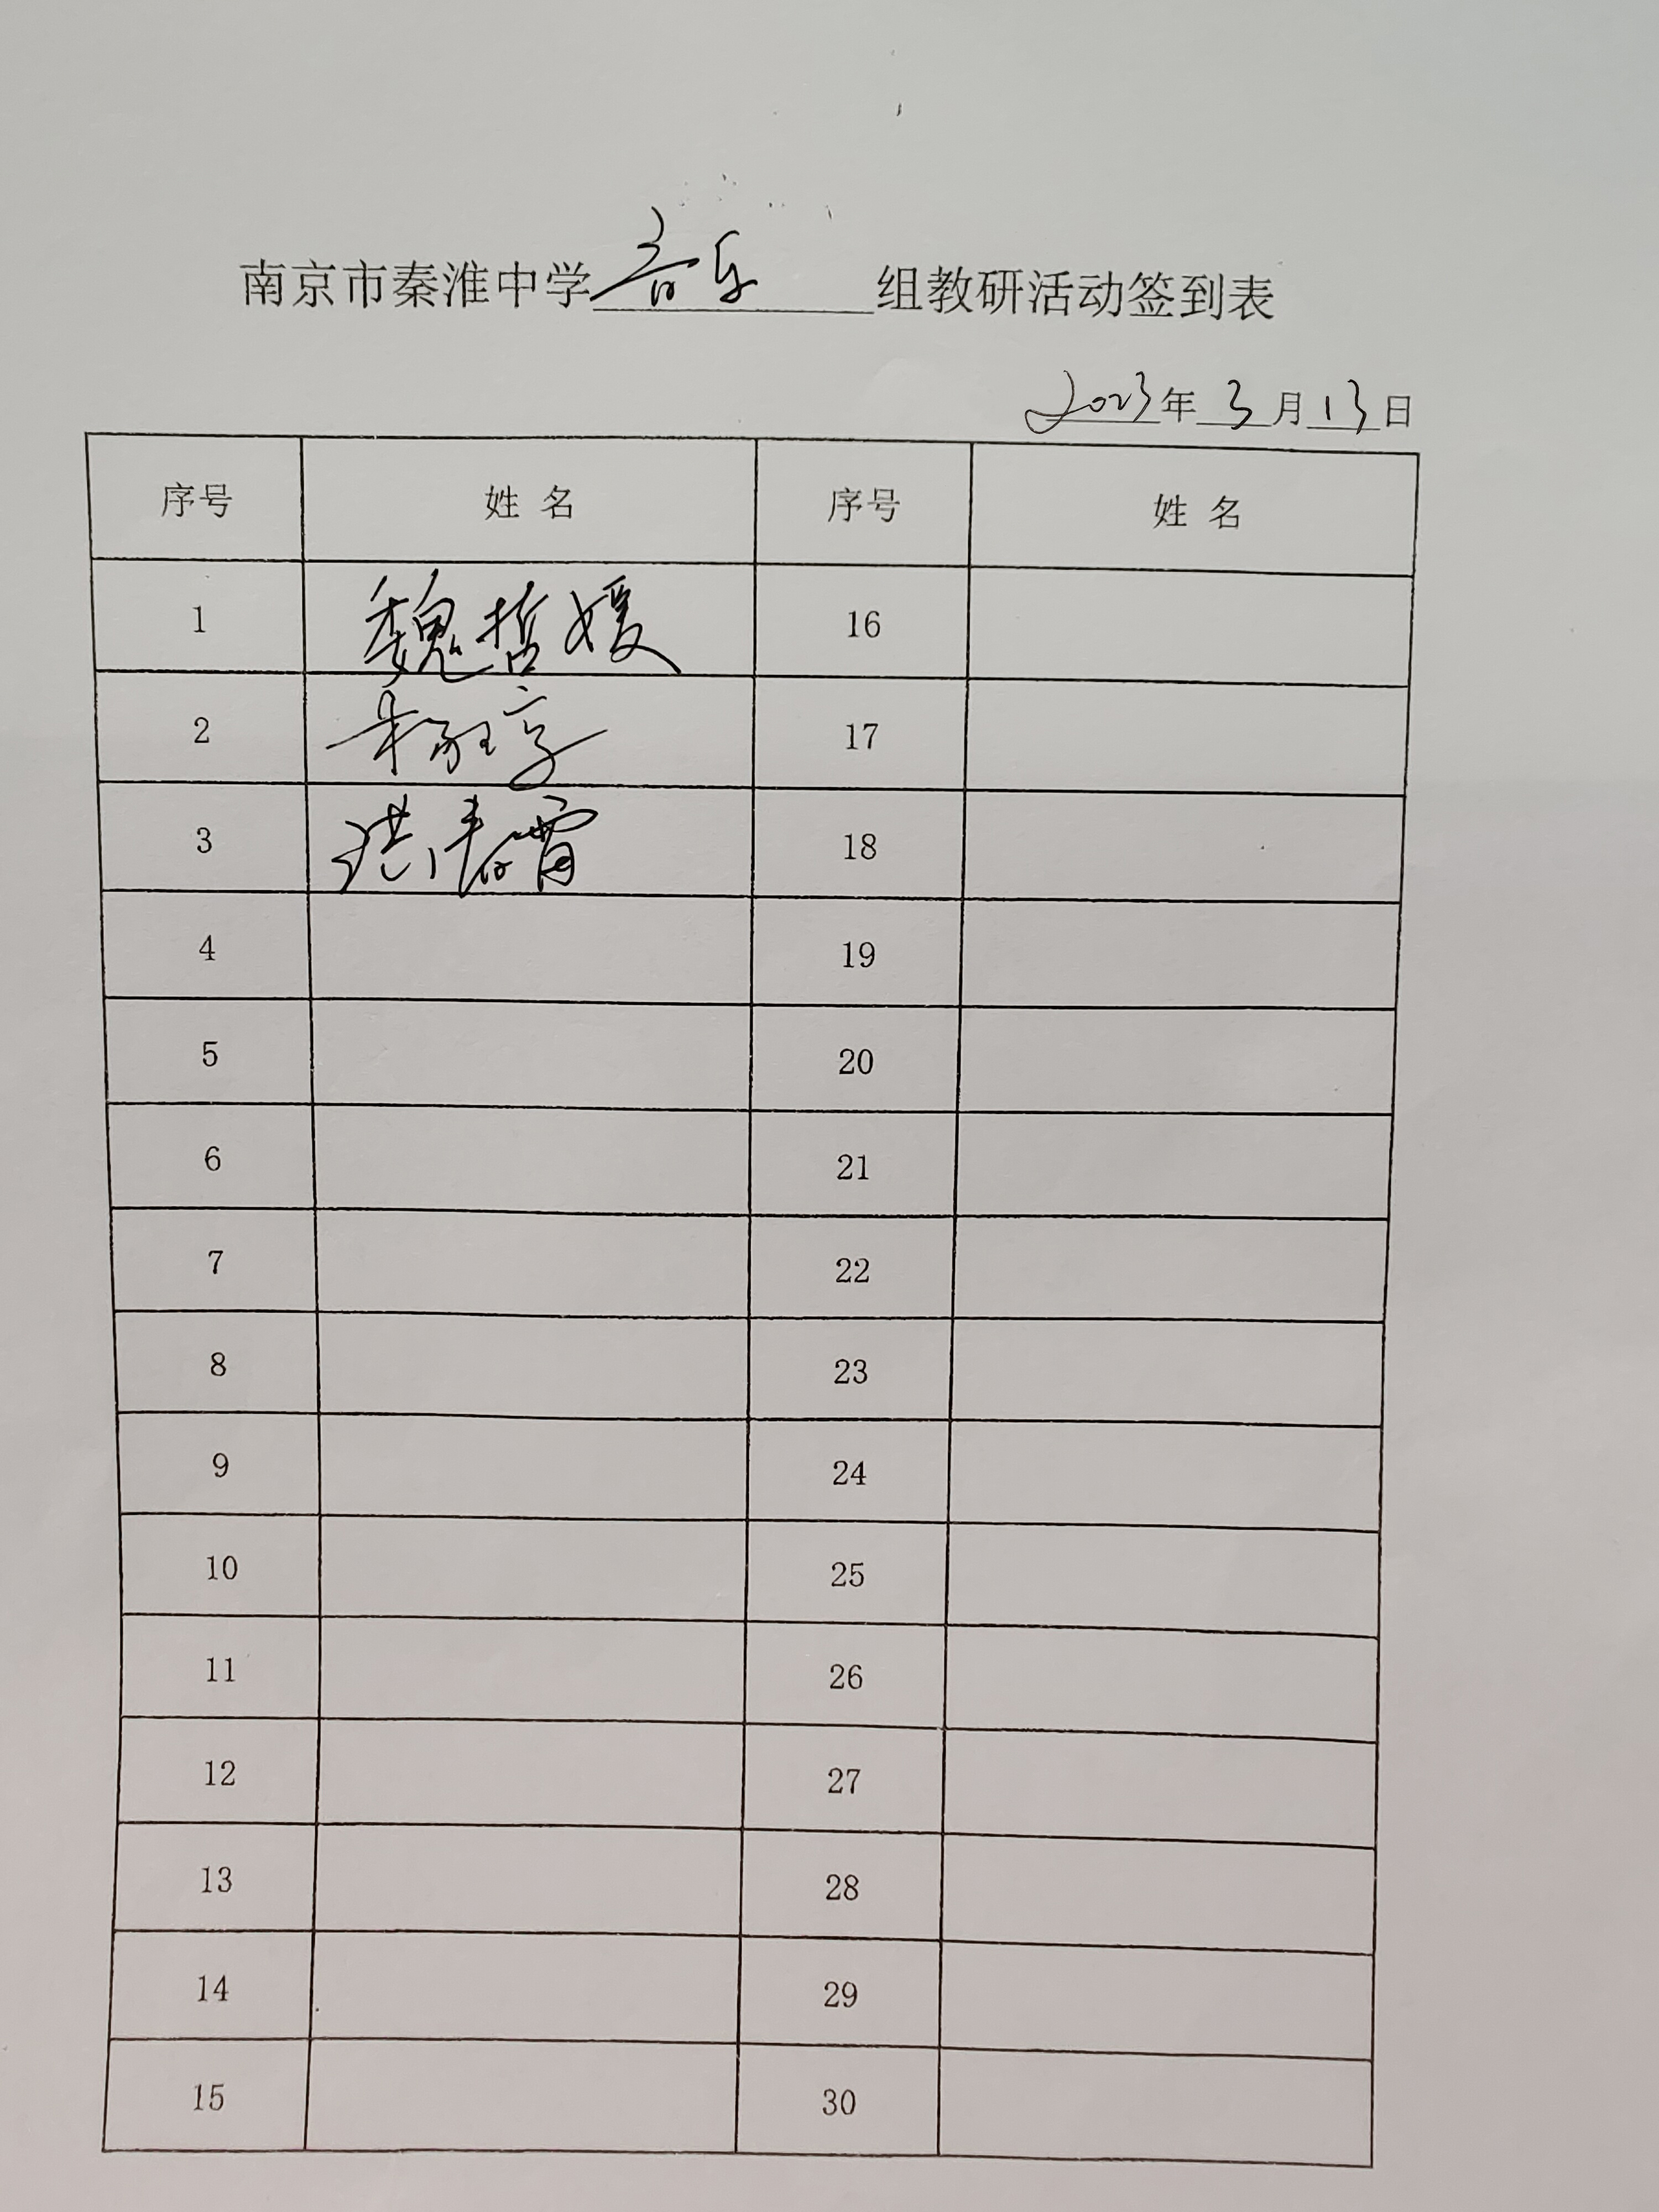 南京市秦淮中学音乐组教研活动签到表
2023年3月13日
序号 姓名 序号 姓名
1 魏哲媛 16
2 17
3 洪春雷 18
4 19
5 20
6 21
7 22
8 23
9 24
10 25
11 26
12 27
13 28
14 29
15 30